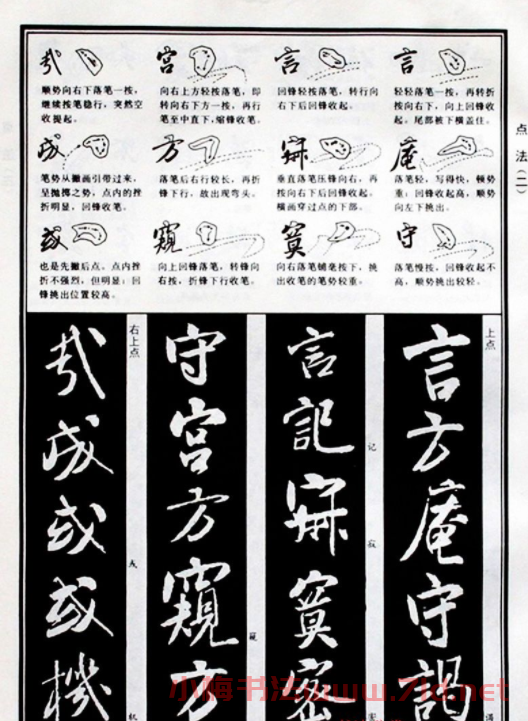 点法(二)
言
轻轻落笔一按,再转折
按向右下,向上回锋收
起。尾部被下横盖住。
庵
落笔轻,写得快,顿势
重;回锋收起高,顺势
向左下挑出。
守
落笔慢按,回锋收起不
高,顺势挑出较轻。
言
回锋轻按落笔,转行向
右下后回锋收起。
寂
垂直落笔压锋向右,再
按向右下后回锋收起。
横画穿过点的下部。
寞
向右落笔铺毫按下,挑
出收笔的笔势较重。
宫
向右上方轻按落笔,即
转向右下方一按,再行
笔至中直下,缩锋收笔。
方
落笔后右行较长,再折
锋下行,故出现弯头。
窥
向上回锋落笔,转锋向
右按,折锋下行收笔。
哉
顺势向右下落笔一按,
继续按笔稳行,突然空
收提起。
成
笔势从撇画引带过来,
呈抛掷之势,点内的挫
折明显,回锋收笔。
或
也是先撇后点。点内挫
折不强烈,但明显;回
锋挑出位置较高。
上点
言方庵守謁
言記寂寞密
记
寂
密
守宫方窺方
窥
右上点
哉成或或機
成
机
小梅书法www.7ld.net